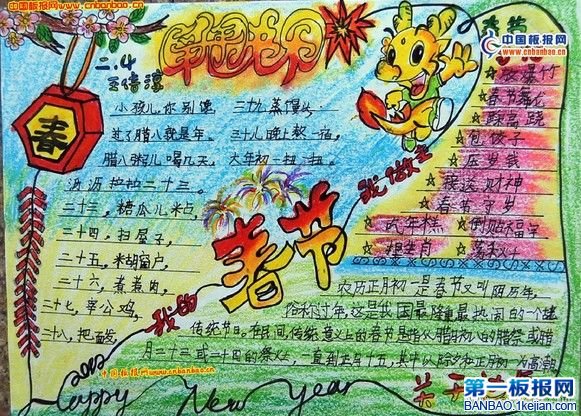 中国板报网
www.cnbanbao.cn
中国板报网
www.cnbanbao.cn
二.4
春
小孩儿,你别馋
过了腊八就是年。
腊八粥儿喝几天,
沥沥拉拉二十三。
二十三,糖瓜儿粘,
二十四,扫屋子,
二十五,糊窗户,
二十六,煮煮肉,
二十七,宰公鸡,
二十八,把面发,
二十九,蒸馒头。
三十儿晚上熬一宿,
大年初一扭一扭。
我的
春节
我做主
放爆竹
☆春节舞龙
☆踩高跷
☆包饺子
☆压岁钱
☆接送财神
☆春节守岁
☆吃年糕
☆倒贴福字
农历正月初一是春节又叫阴历年,
俗称过年,这是我国最隆重最热闹的一个
传统节日。在民间,传统意义上的春节是指从腊月初八的腊祭或腊
月二十三或二十四的祭灶,一直到正月十五,其中以除夕和正月初一为高潮
2012
中国板报网 www.cnbanbao.cn
Happy New Year
第一板报网
BANBAO.1kejian.com